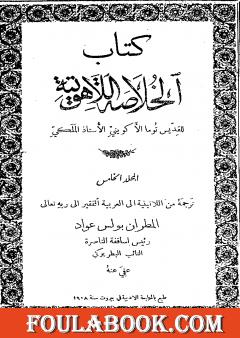 كتاب
الخلاصة اللاهوتية
للقديس توما الاكويني الأستاذ الملكي
المجلد الخامس
ترجمة من اللاتينية الى العربية الفقير الى ربه تعالى
المطران بولس عواد
رئيس اساقفة الناصرة
النائب البطريركي
عفي عنه
طبع بالمطبعة الادبية في بيروت سنة ١٩٠٨
FOULABOOK.COM